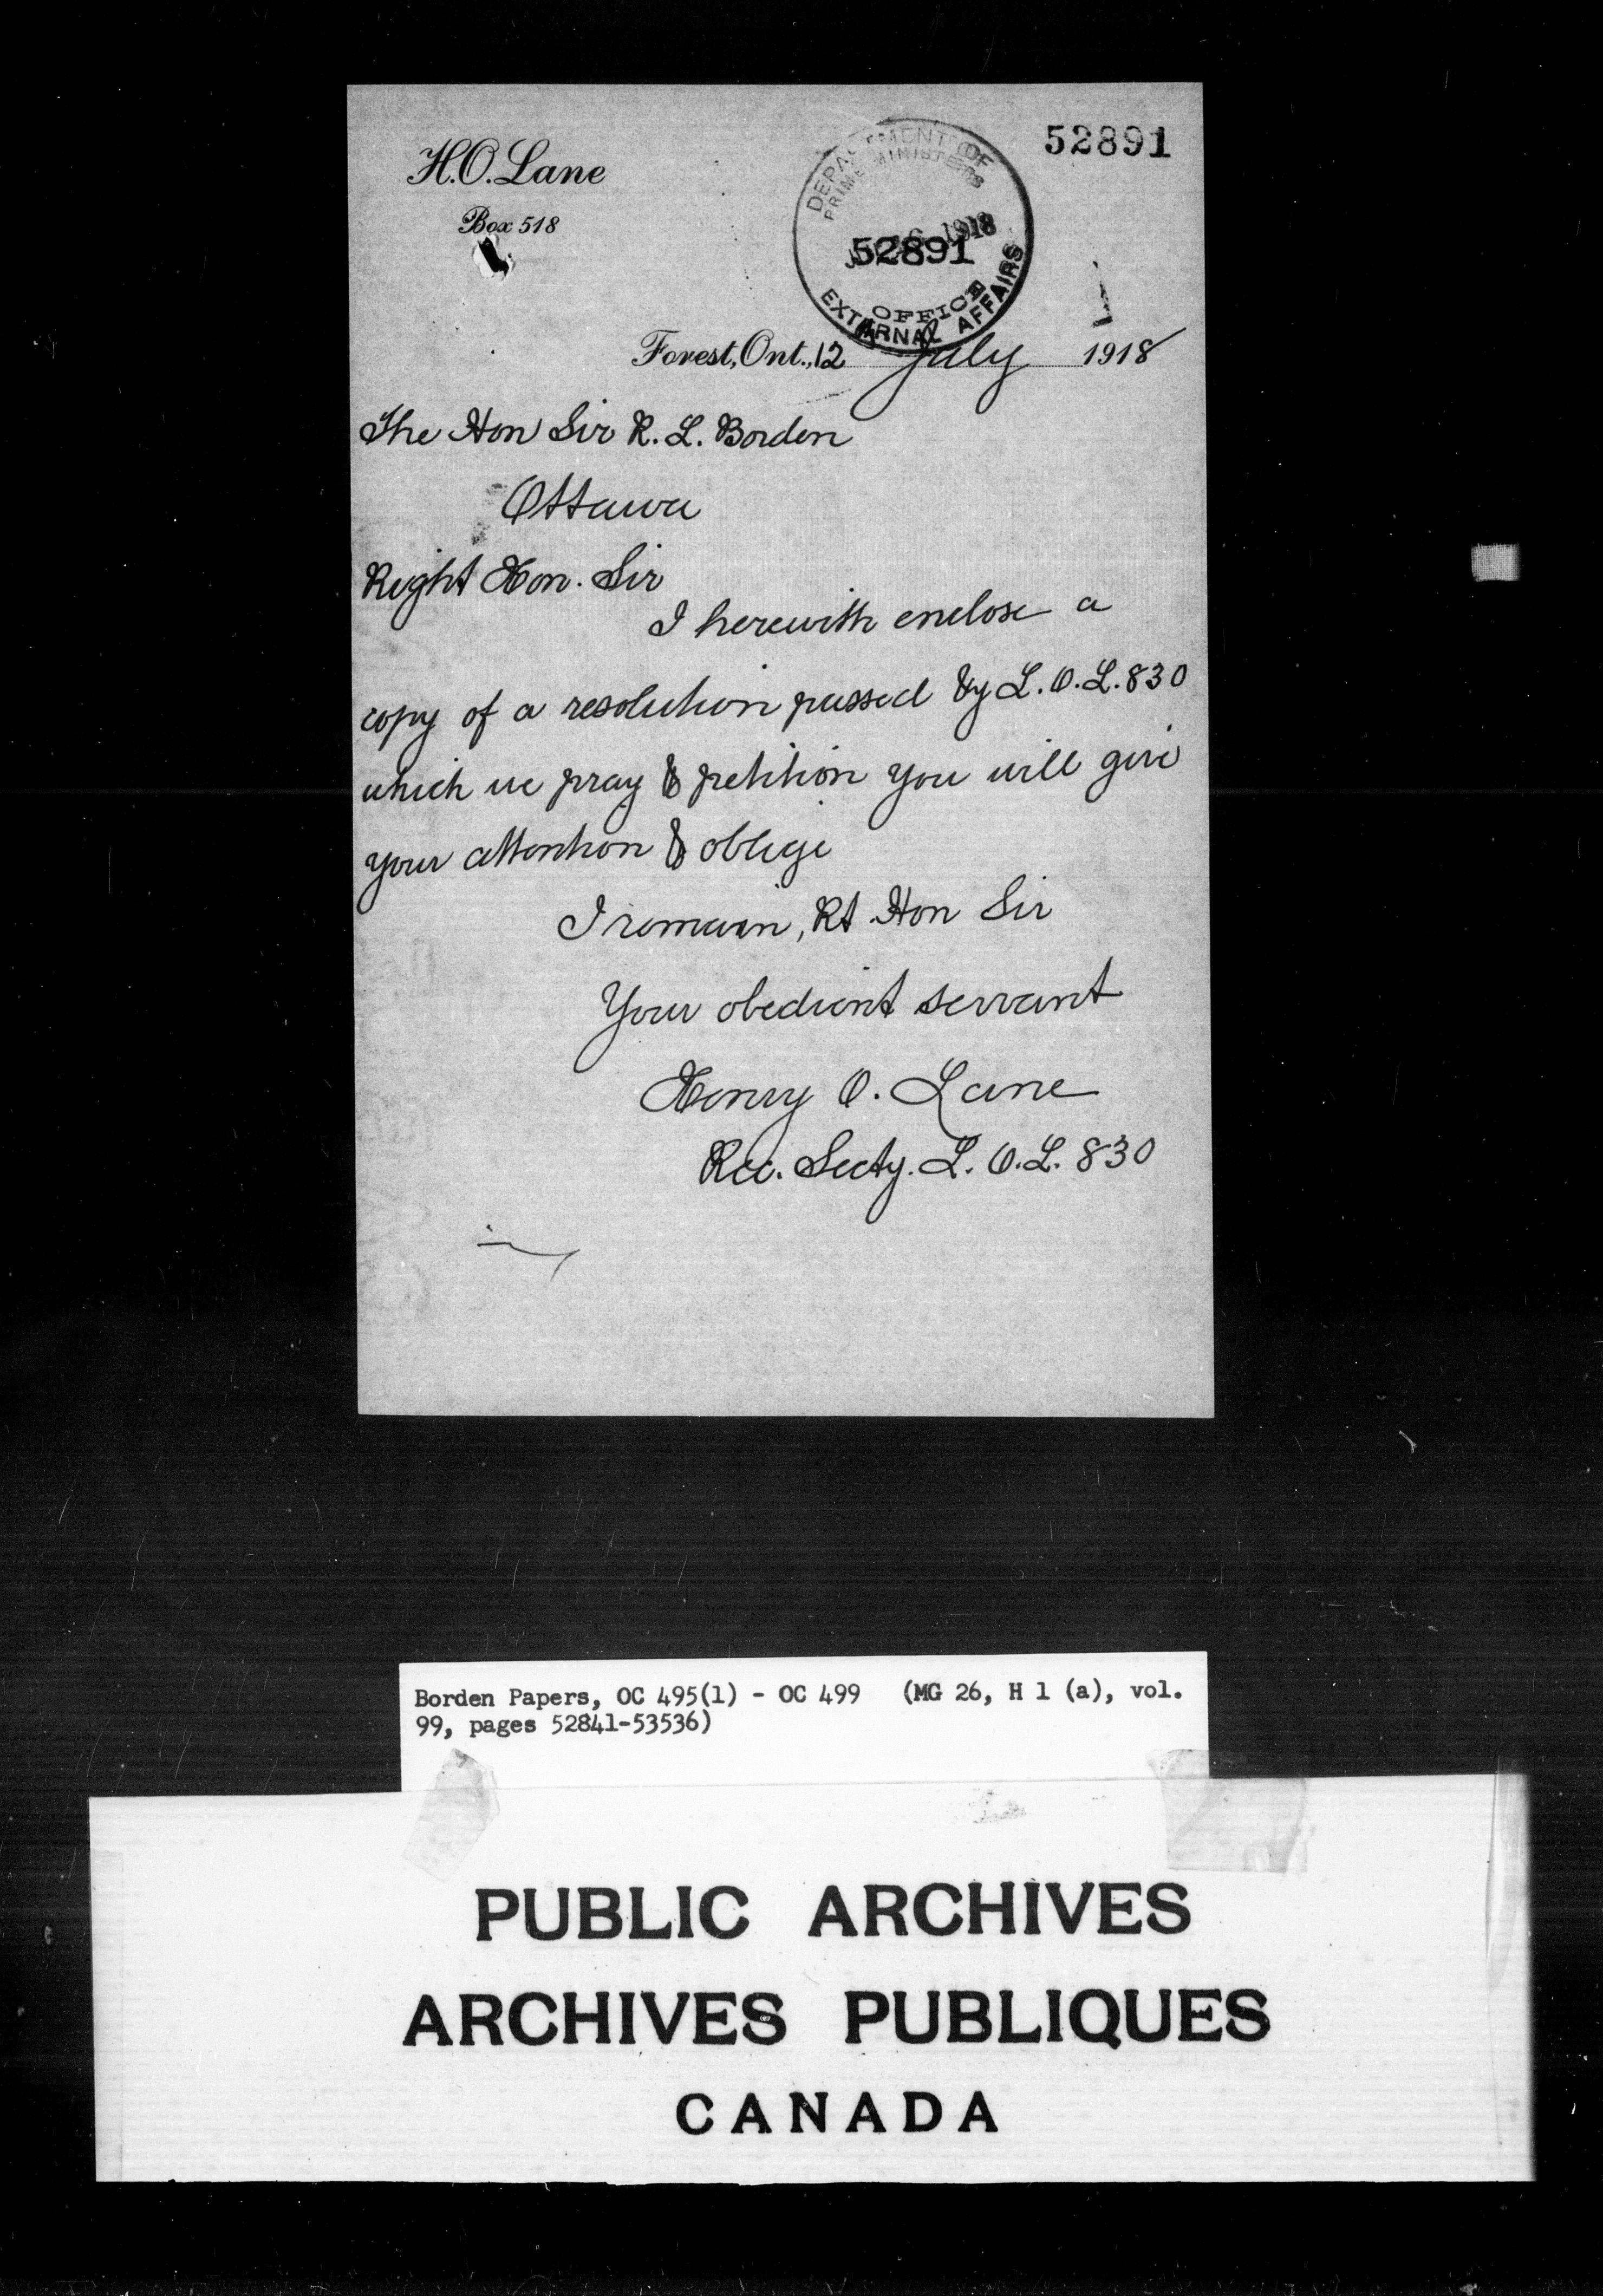 H.O. Lane
Box 518
52891
DEPARTMENT OF
PRIME MINISTERS
1918
52891
OFFICE
EXTERNAL AFFAIRS
Forest, Ont., 12 July 1918
The Hon Sir R. L. Borden
Ottawa
Right Hon. Sir
I herewith enclose a
copy of a resolution passed by L.O.L. 830
which we pray & petition you will give
your attention & oblige
I remain, Rt Hon Sir
Your obedient servant
Henry O. Lane
Rec. Secty. L.O.L. 830
Borden Papers, OC 495(1) - OC 499 (MG 26, H 1 (a), vol.
99, pages 52841-53536)
PUBLIC ARCHIVES
ARCHIVES PUBLIQUES
CANADA